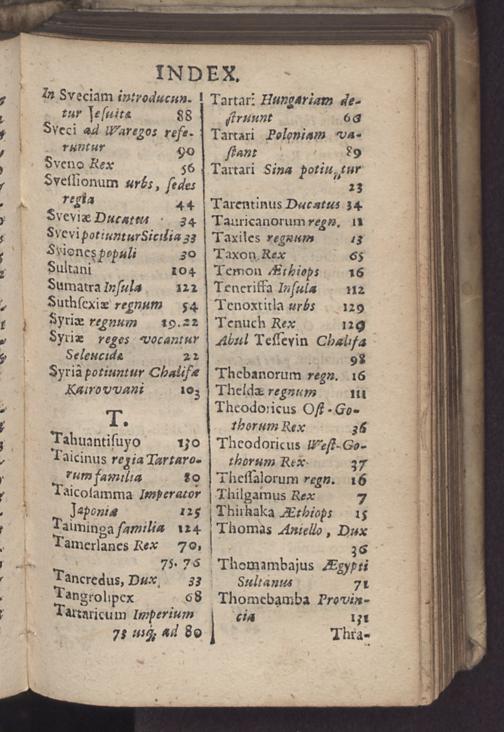 INDEX.
In Sveciam introducun-
tur Jesuitæ 88
Sveci ad Waregos refe-
runtur 90
Sveno Rex 56
Svessionum urbs, sedes
regia 44
Sveviæ Ducatus 34
Svevi potiuntur Sicilia 33
Sviones populi 30
Sultani 104
Sumatra Insula 122
Suthsexiæ regnum 54
Syriæ regnum 19.22
Syriæ reges vocantur
Seleucidæ 22
Syriâ potiuntur Chalifæ
Kairovvani 103
T.
Tahuantisuyo 130
Taicinus regia Tartaro-
rum familia 80
Taicosamma Imperator
Japoniæ 125
Taiminga familia 124
Tamerlanes Rex 70,
75. 76
Tancredus, Dux 33
Tangrolipex 68
Tartaricum Imperium
78 usq; ad 80
Tartari Hungariam de-
struunt 66
Tartari Poloniam va-
stant 89
Tartari Sina potiuntur
23
Tarentinus Ducatus 34
Tauricanorum regn. 11
Taxiles regnum 13
Taxon Rex 65
Temon Æthiops 16
Teneriffa Insula 112
Tenoxtitla urbs 129
Tenuch Rex 129
Abul Tessevin Chalifa
98
Thebanorum regn. 16
Theldæ regnum 111
Theodoricus Ost-Go-
thorum Rex 36
Theodoricus West-Go-
thorum Rex 37
Thessalorum regn. 16
Thilgamus Rex 7
Thirhaka Æthiops 15
Thomas Aniello, Dux
36
Thomambajus Ægypti
Sultanus 71
Thomebamba Provin-
cia 131
Thra-